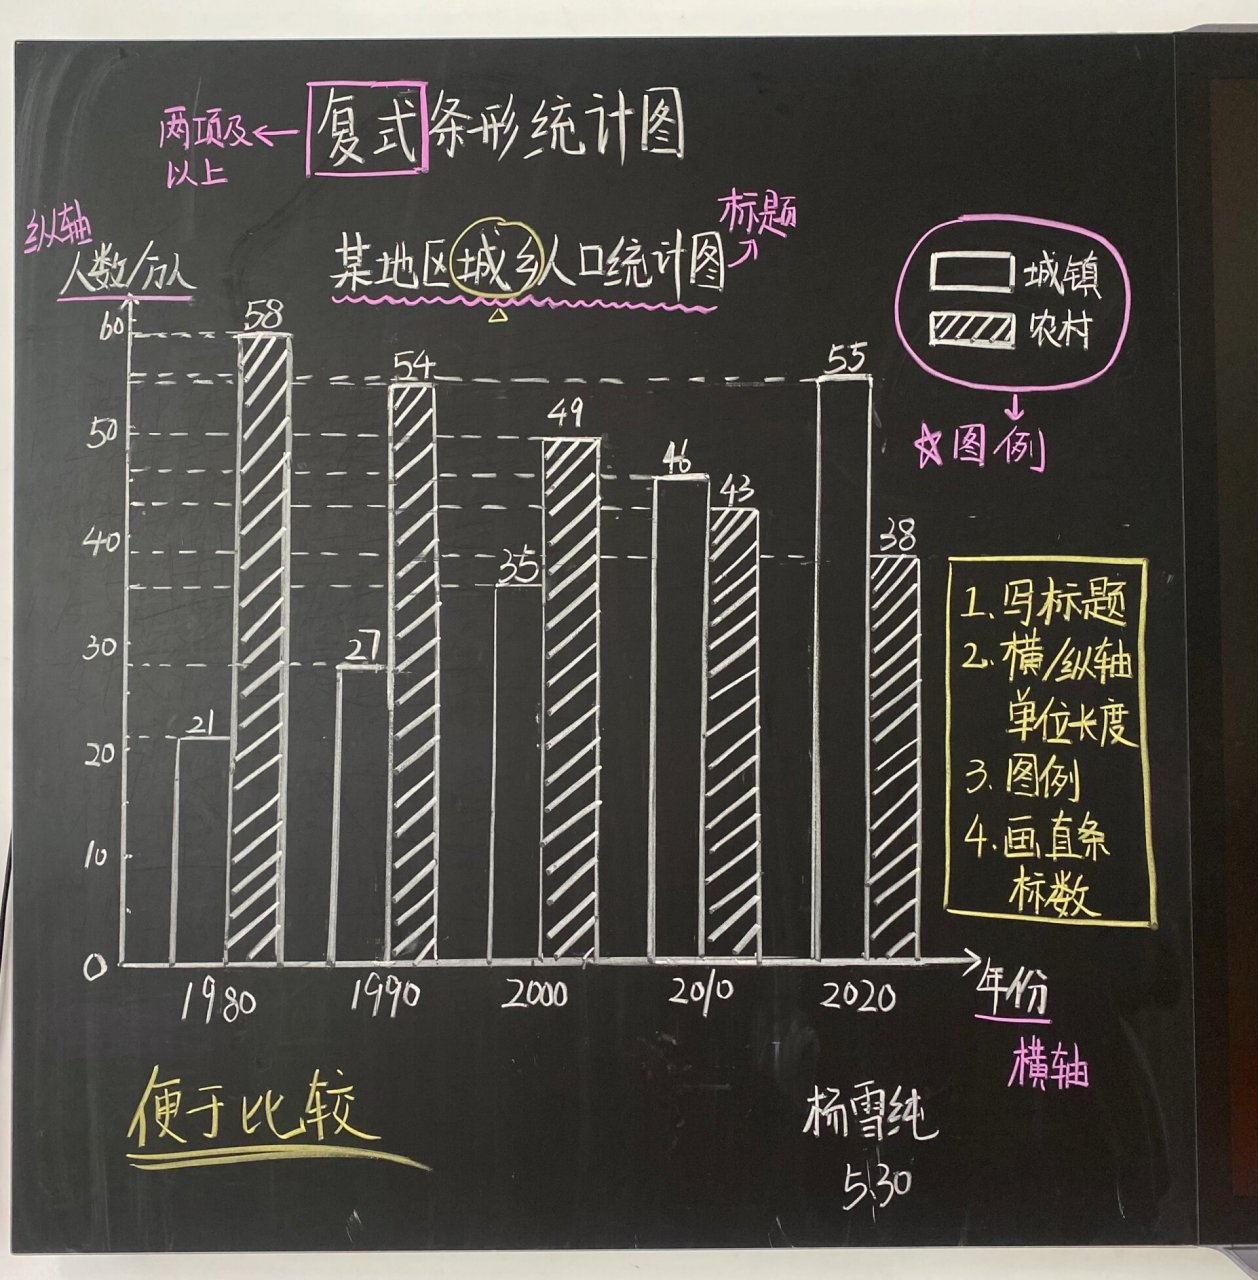 复式条形统计图
两项及
以上
纵轴
人数/万人
某地区城乡人口统计图
标题
城镇
农村
☆图例
60
50
40
30
20
10
0
21
58
27
54
35
49
46
43
55
38
1980
1990
2000
2010
2020
年份
横轴
1.写标题
2.横/纵轴
单位长度
3.图例
4.画直条
标数
便于比较
杨雪纯
5.30